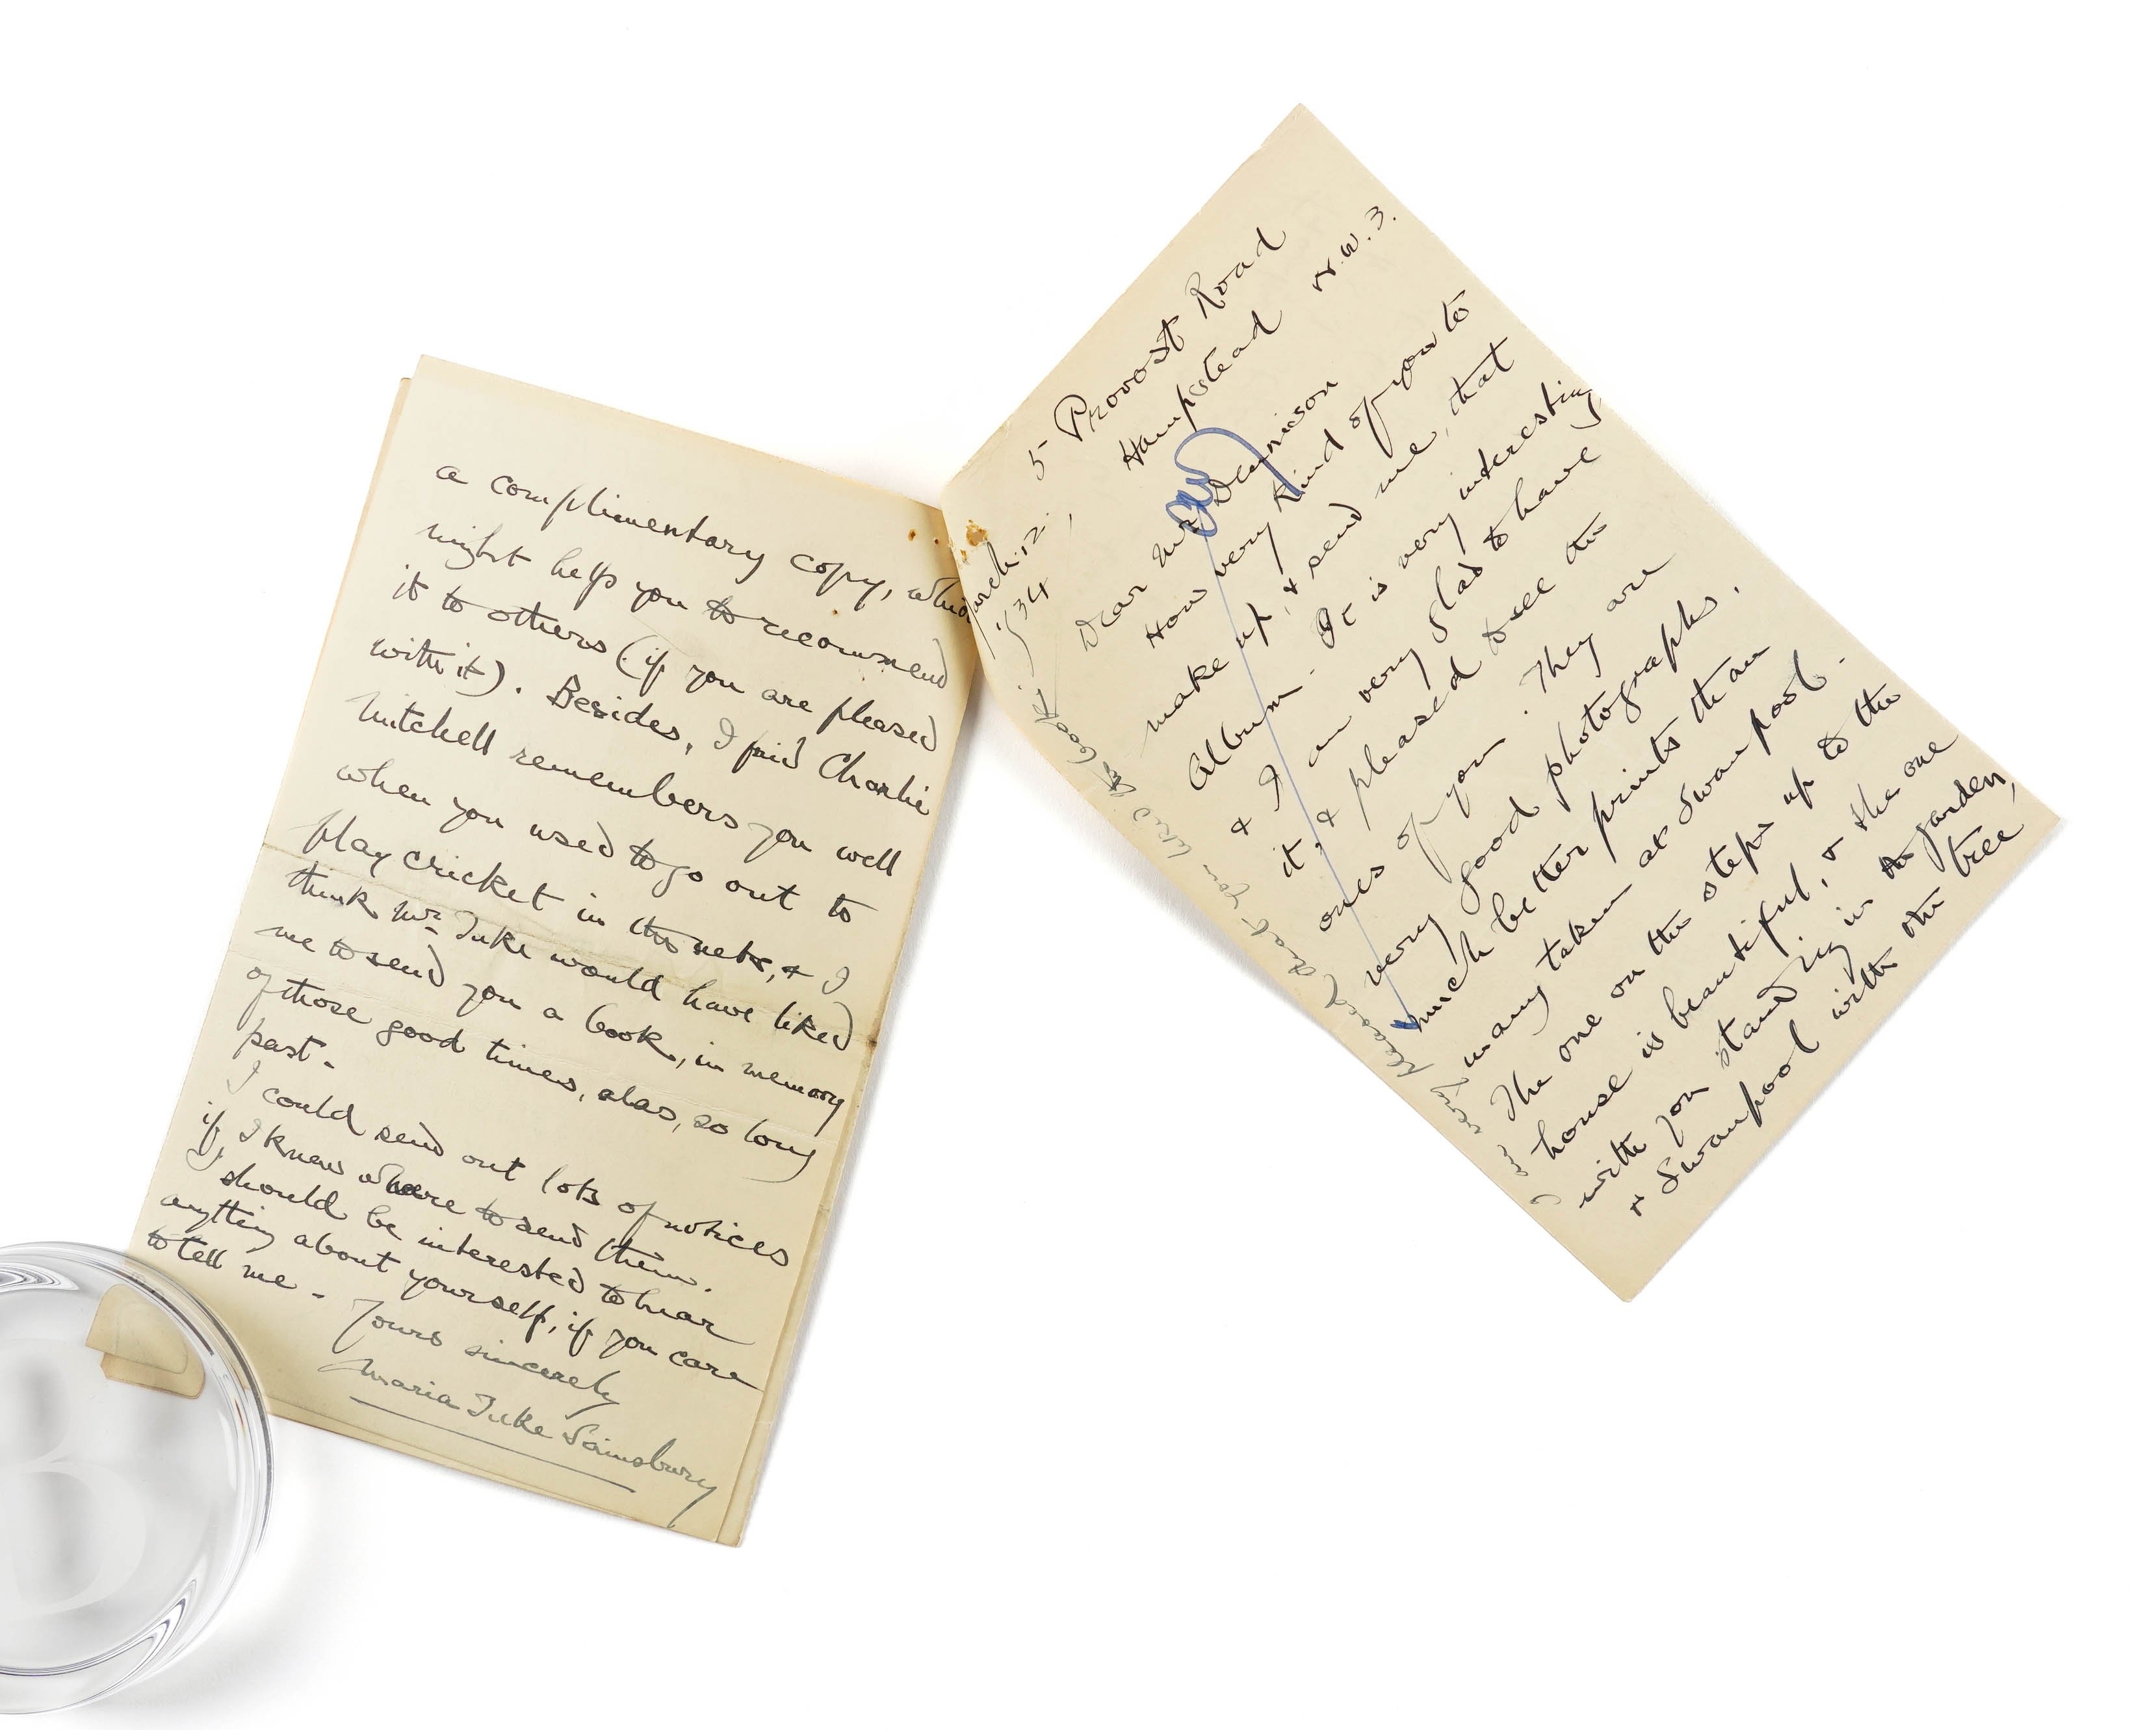 a complimentary copy, which
might help you to recommend
it to others (if you are pleased
with it). Besides, I find Charlie
Mitchell remembers you well
when you used to go out to
play cricket in the nets, & I
think Mr. Tuke would have liked
me to send you a book, in memory
of those good times, alas, so long
past.
I could send out lots of notices
if I knew where to send them.
I should be interested to hear
anything about yourself, if you care
to tell me.
Yours sincerely
Maria Tuke Sainsbury
5 Provost Road
Hampstead N.W.3.
March 12.
/34
Dear Mr Dennison
How very kind of you to
make up, & send me, that
Album. It is very interesting
& I am very glad to have
it, & pleased to see the
ones of you. They are
very good photographs.
much better prints than
many taken at Swanpool.
The one on the steps up to the
house is beautiful, & the one
with you standing in the garden,
& Swanpool with the tree
I am very pleased that you liked the book.
B